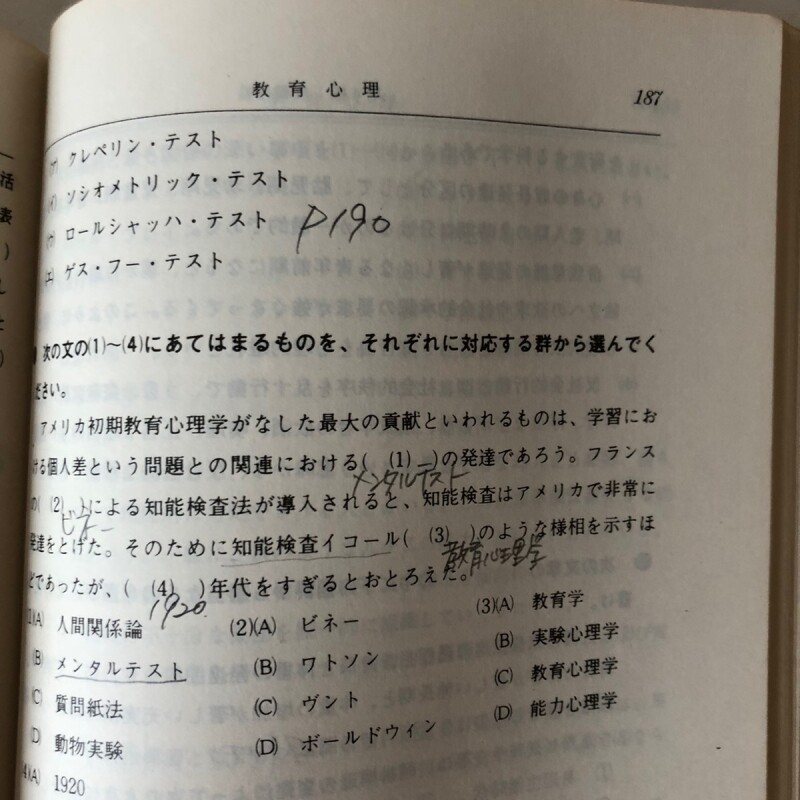 教育心理 187
(ア) クレペリン・テスト
(イ) ソシオメトリック・テスト
(ウ) ロールシャッハ・テスト P190
(エ) ゲス・フー・テスト
次の文の(1)~(4)にあてはまるものを、それぞれに対応する群から選んでく
ださい。
アメリカ初期教育心理学がなした最大の貢献といわれるものは、学習にお
ける個人差という問題との関連における( (1) )の発達であろう。フランス
メンタルテスト
の( (2) )による知能検査法が導入されると、知能検査はアメリカで非常に
ビネー
発達をとげた。そのために知能検査イコール( (3) )のような様相を示すほ
教育心理学
どであったが、( (4) )年代をすぎるとおとろえた。
1920
(1)(A) 人間関係論 (2)(A) ビネー (3)(A) 教育学
(B) メンタルテスト (B) ワトソン (B) 実験心理学
(C) 質問紙法 (C) ヴント (C) 教育心理学
(D) 動物実験 (D) ボールドウィン (D) 能力心理学
(4)(A) 1920
活
表
)